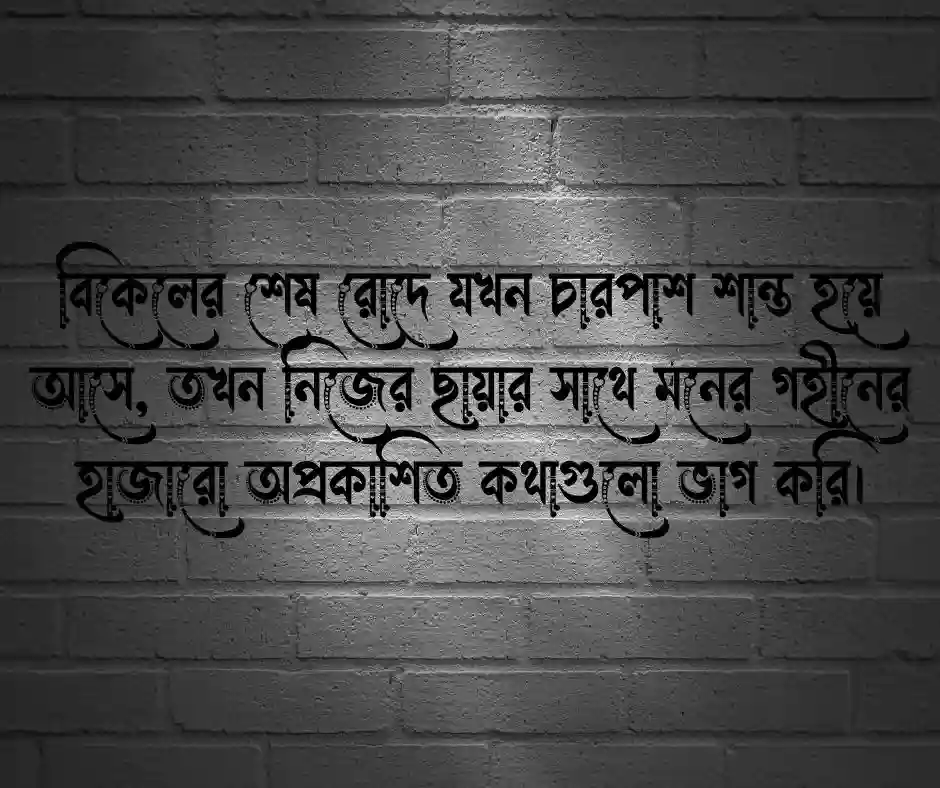 বিকেলের শেষ রোদে যখন চারপাশ শান্ত হয়ে
আসে, তখন নিজের ছায়ার সাথে মনের গহীনের
হাজারো অপ্রকাশিত কথাগুলো ভাগ করি।